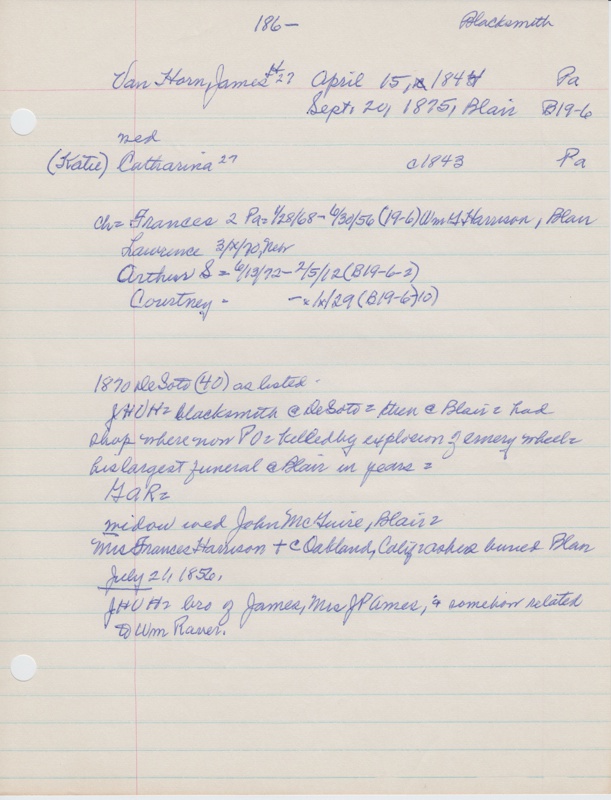 186- Blacksmith
Van Horn, James H 27 April 15, 1844 Pa
Sept. 20, 1875, Blair B19-6
wed
(Katie) Catharina 27 c1843 Pa
ch= Frances 2 Pa= 1/28/68- 6/30/56 (19-6) Wm H Harrison, Blair
Lawrence 3/x/70, Neb
Arthur S = 6/13/73- 2/5/12 (B19-6-2)
Courtney - -x/x/29 (B19-6-10)
1870 DeSoto (40) as listed.
JHVH= blacksmith @ DeSoto= then @ Blair= had
shop where now PO= killed by explosion of emery wheel=
his largest funeral @ Blair in years=
GAR=
widow wed John McGuire, Blair=
Mrs Frances Harrison + @ Oakland, Calif= ashes buried Blair
July 21, 1956.
JHVH= bro of James, Mrs J P Ames, & somehow related
to Wm Raver.